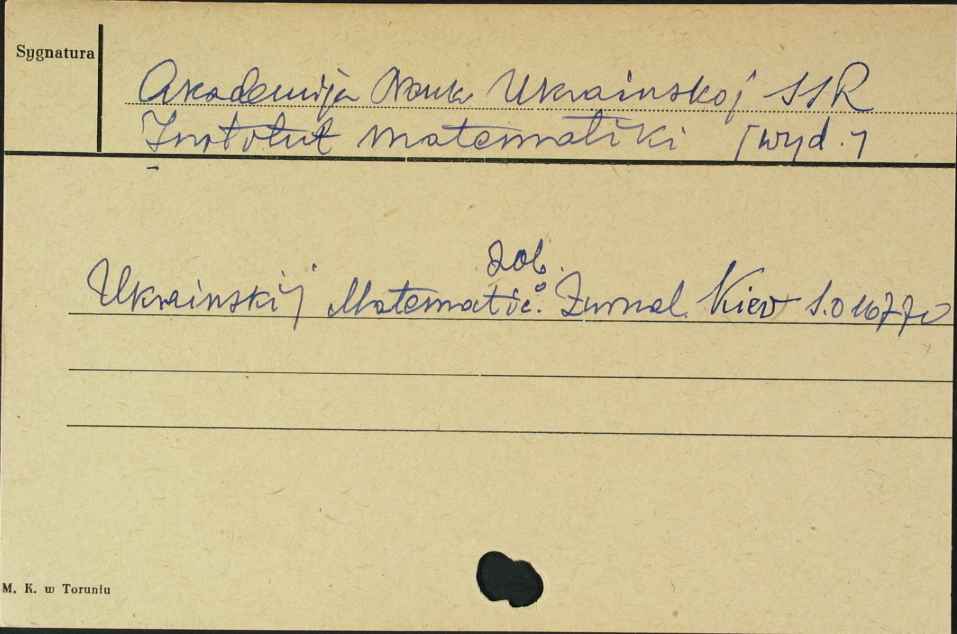 Sygnatura
Akademija Nauk Ukrainskoj SSR
Institut matematiki [wyd.]
zob.
Ukrainskij Matematič. Žurnal. Kiev S.01677 
M. K. w Toruniu